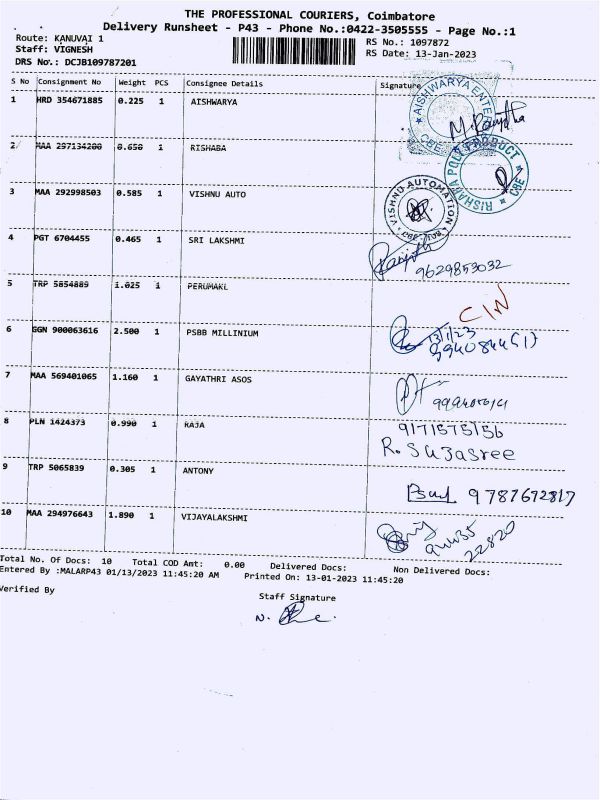 THE PROFESSIONAL COURIERS, Coimbatore
Delivery Runsheet - P43 - Phone No.:0422-3505555 - Page No.:1
Route: KANUVAI 1
RS No.: 1097872
Staff: VIGNESH
RS Date: 13-Jan-2023
DRS No.: DCJB109787201
S No Consignment No Weight PCS Consignee Details Signature
AISHWARYA ENTER
CBE
1 HRD 354671885 0.225 1 AISHWARYA
2 MAA 297134200 0.650 1 RISHABA
RISHABA POLY PRODUCT
CBE
3 MAA 292998503 0.585 1 VISHNU AUTO
VISHNU AUTOMATION
4 PGT 6704455 0.465 1 SRI LAKSHMI
9629853032
5 TRP 5854889 1.025 1 PERUMAKL
6 GGN 900063616 2.500 1 PSBB MILLINIUM
13/1/23
7 MAA 569401065 1.160 1 GAYATHRI ASOS
8 PLN 1424373 0.990 1 RAJA
9171575156
R. Sujasree
9 TRP 5065839 0.305 1 ANTONY
9787672817
10 MAA 294976643 1.890 1 VIJAYALAKSHMI
22820
Total No. Of Docs: 10 Total COD Amt: 0.00 Delivered Docs: Non Delivered Docs:
Entered By :MALARP43 01/13/2023 11:45:20 AM Printed On: 13-01-2023 11:45:20
Verified By
Staff Signature